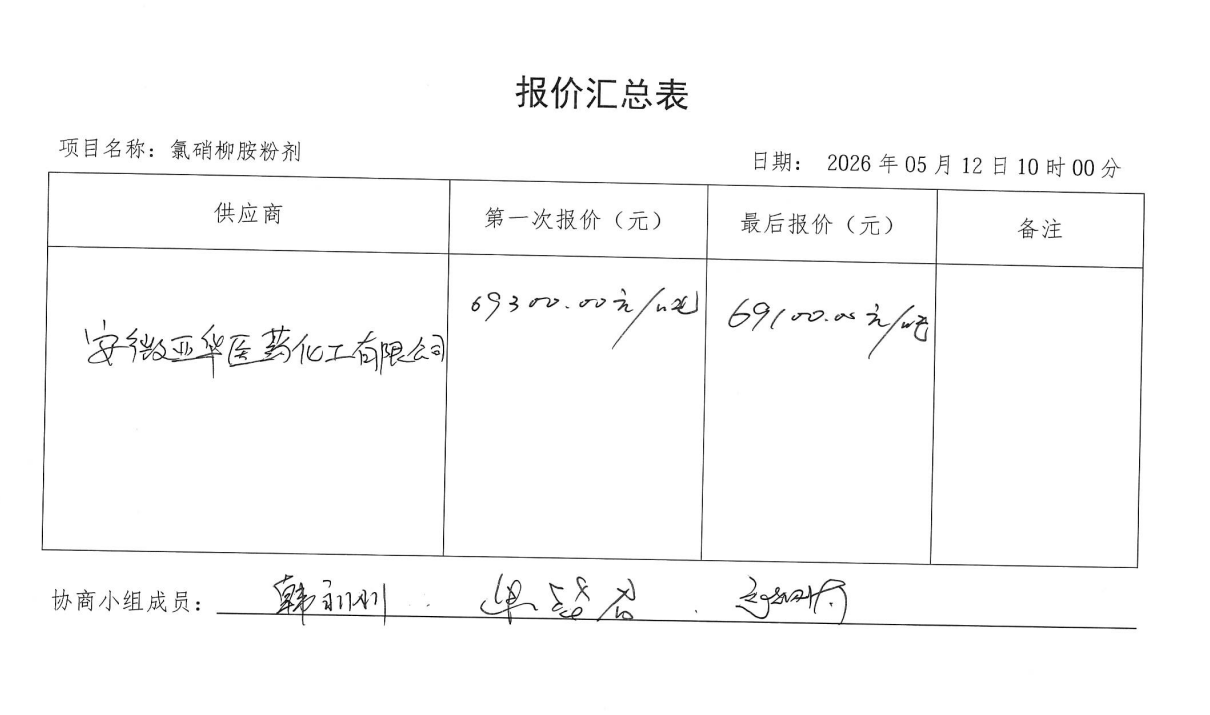 报价汇总表
项目名称：氯硝柳胺粉剂
日期： 2026年05月12日10时00分
供应商 第一次报价（元） 最后报价（元） 备注
69300.00元/吨 69100.00元/吨
安徽亚华医药化工有限公司
协商小组成员：